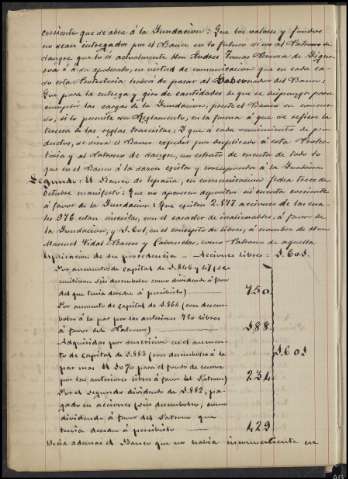 corresponde que se abra á la Fundacion: Que los valores y fondos
no sean entregados por el Banco en lo futuro sino al Patrono de
sangre que lo es actualmente don Andres Tomas
ó á su apoderado, en virtud de comunicacion que en cada ca-
so esta Protectoria habrá de pasar al Gobernador del Banco:
Que para la entrega y giro de cantidades de que se disponga para
cumplir las cargas de la Fundacion, preste el Banco su concur-
so, si lo permite su Reglamento, en la forma á que se refiere la
tercera de las reglas transcritas; y que á cada vencimiento de pro-
ductos, se sirva el Banco expedir por duplicado á esta Protec-
toria y al Patrono de sangre, un extracto de cuenta de todo lo
que en el Banco á la sazon exista y corresponda á la Fundacion
Segundo: El Banco de España, en comunicacion fecha trece de
Octubre manifestó: Que no aparecen depositos ni cuenta corriente
á favor de la Fundacion: Que existen 2.577 acciones de las cua-
les 976, estan inscritas, con el caracter de inalienables, á favor de
la Fundacion, y 1.601, en el concepto de libres, á nombre de Don
Manuel Vidal como Patrono de aquella
Explicacion de su procedencia - Acciones libres: 1.601
Por aumento de capital de 1.864
sin desembolso como dividendo á favor
del que tenia derecho á percibirlo)
750
Por aumento de capital de 1.864 (con desem-
bolso á la par por las anteriores 750 libres
á favor del Patrono)
188
Adquiridas por suscricion en el aumen-
to de capital de 1.883 (con desembolso á la
par mas el 30% para el fondo de reserva
por las anteriores libres á favor del Patrono)
234
Por el segundo dividendo de 1.882, pa-
gado en acciones (sin desembolso, como
dividendo á favor del Patrono que
tenia derecho á percibirlo
429
1.601
Decia ademas el Banco que no habia inconveniente en